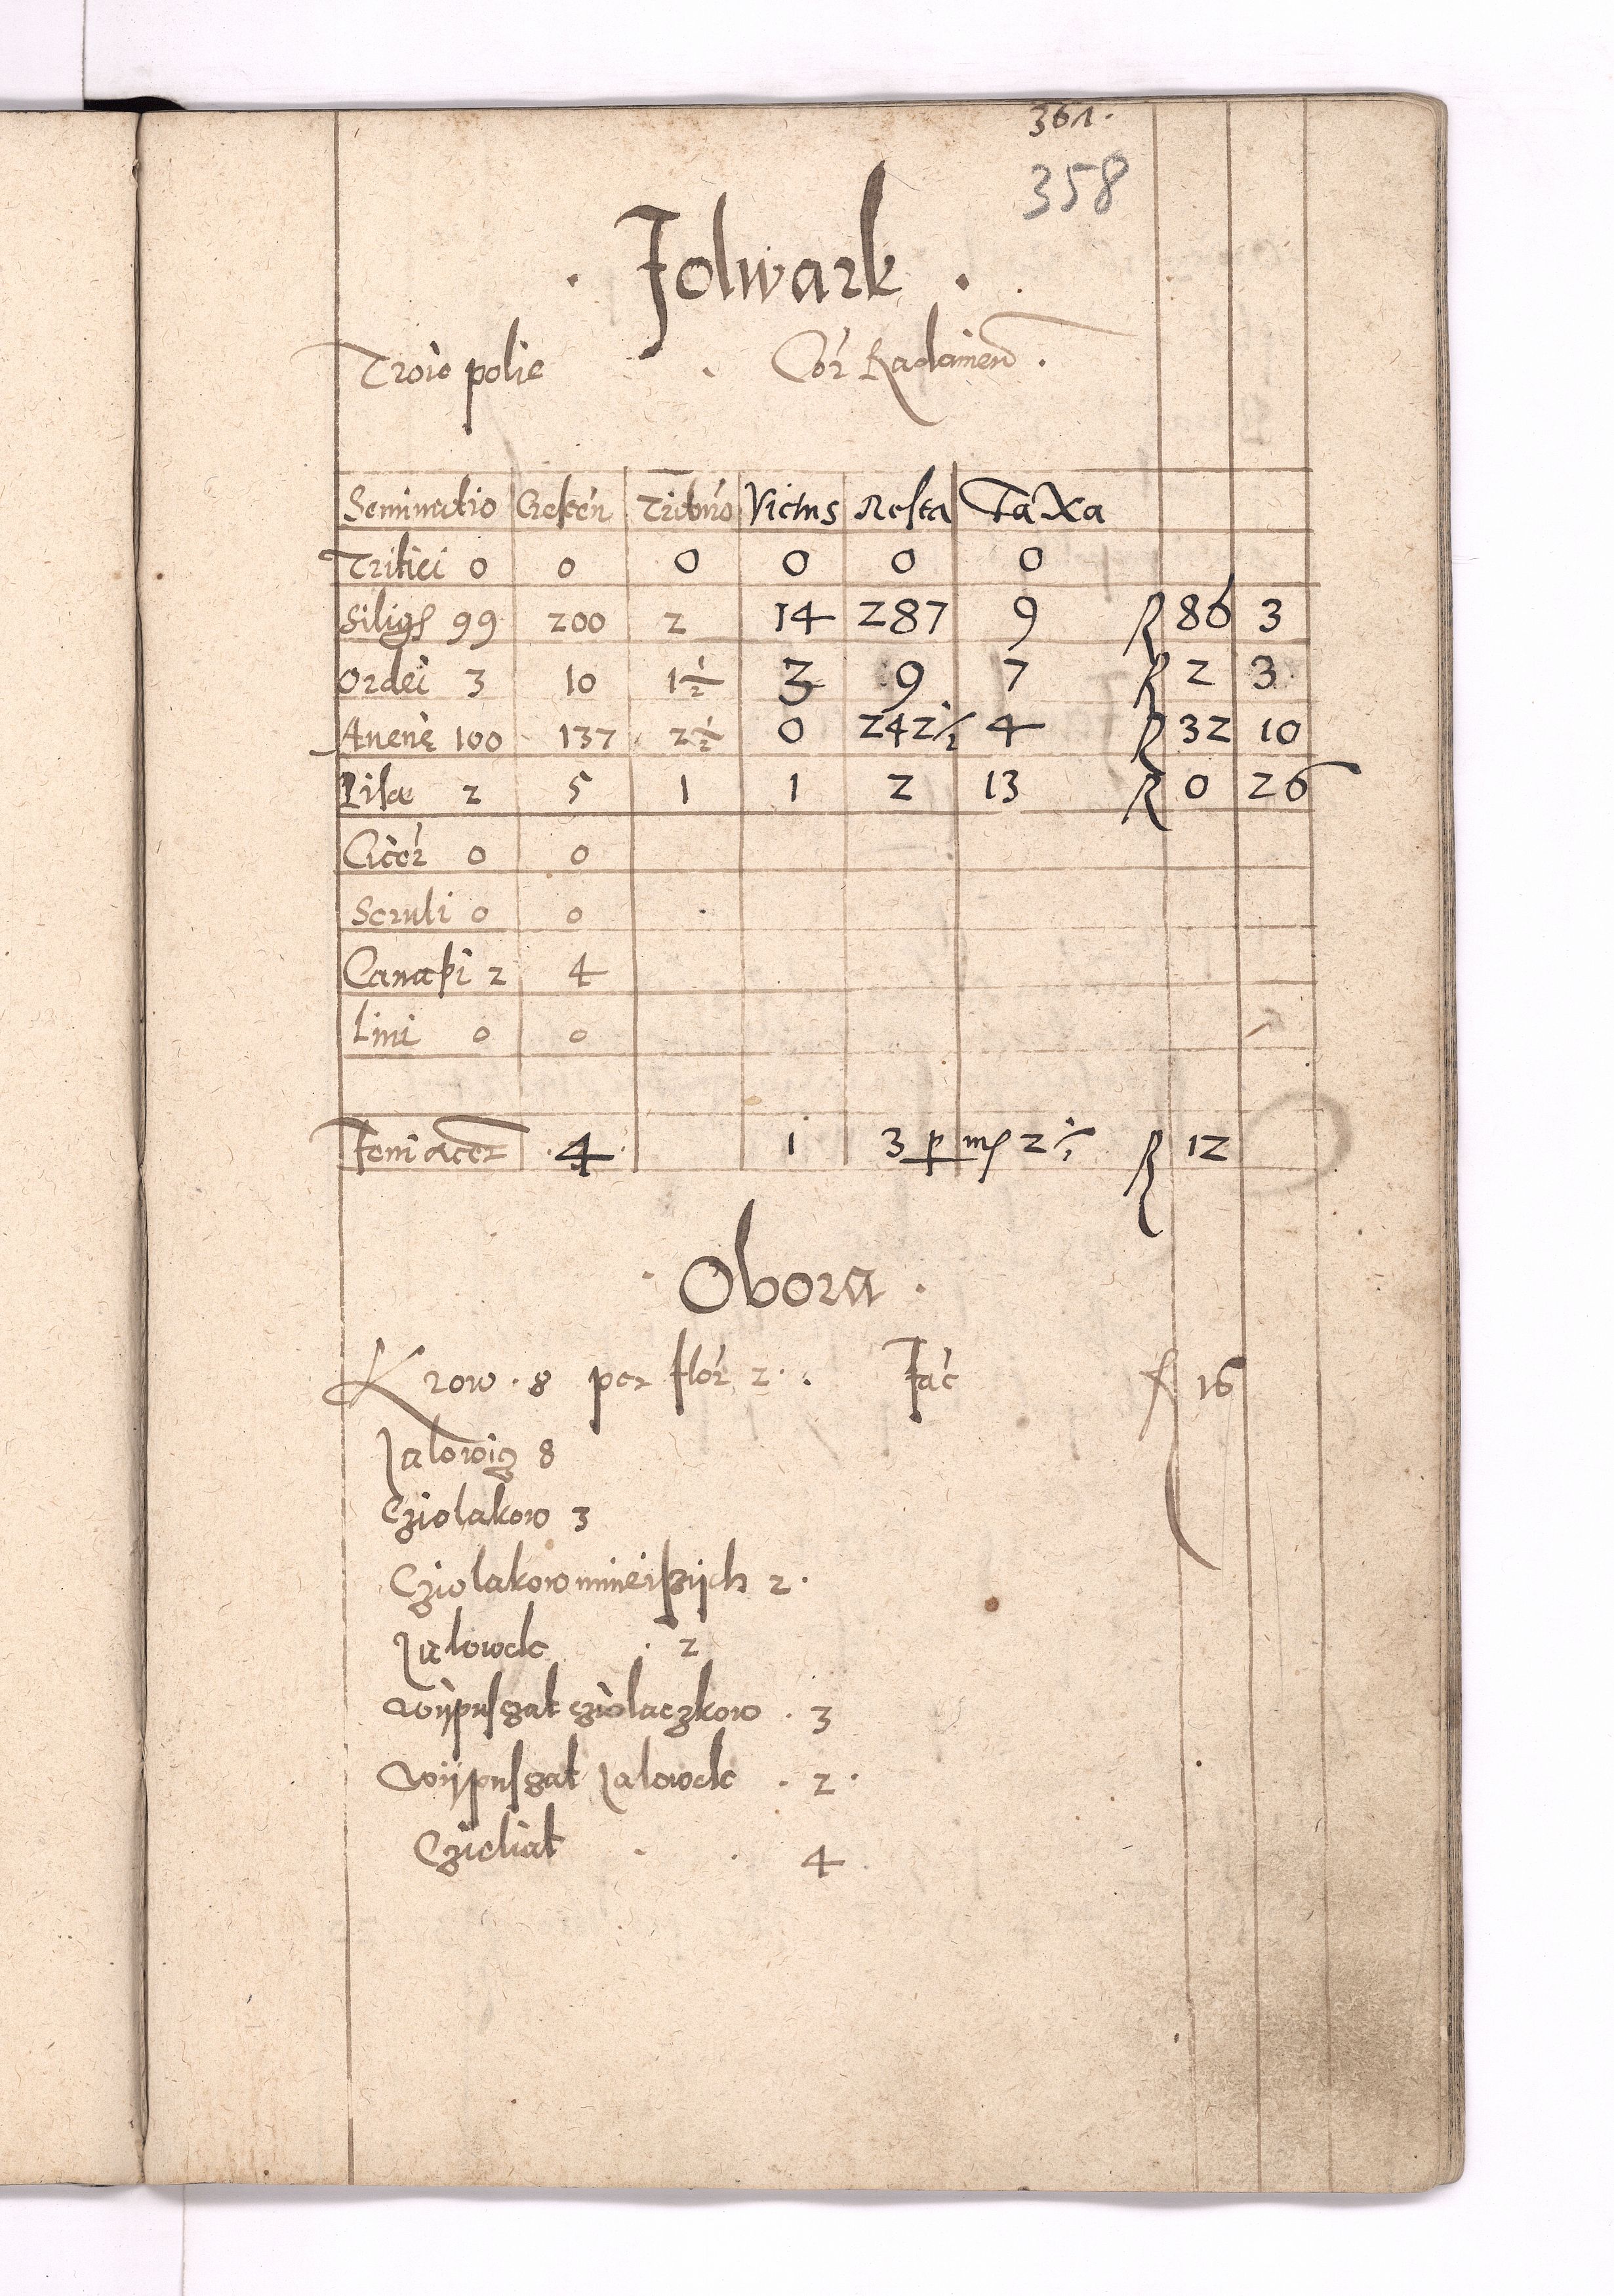 361.
358
· Folwark ·
Troie polie · Cor Radomien ·
Seminatio Cresceñ Triturõ Victus Resta TaXa
Tritici 0 0 0 0 0 0
Siligs 99 200 2 14 287 9 R 86 3
Ordei 3 10 1½ 3 9 7 R 2 3
Auenę 100 137 2½ 0 242½ 4 R 32 10
Pisæ 2 5 1 1 2 13 R 0 26
Cicer 0 0
0 0
Canapi 2 4
Lini 0 0
Feni acer 4 1 3 p 2½ R 12
· Obora ·
Krow · 8 per flor 2 · Fac f 16
Jalowig 8
Cziolakow 3
Cziolakow mnieiszijch 2 ·
Jalowek · 2
wijpusgat cziolaczkow · 3
wijpusgat Jalowek · 2 ·
Czieliat · · 4